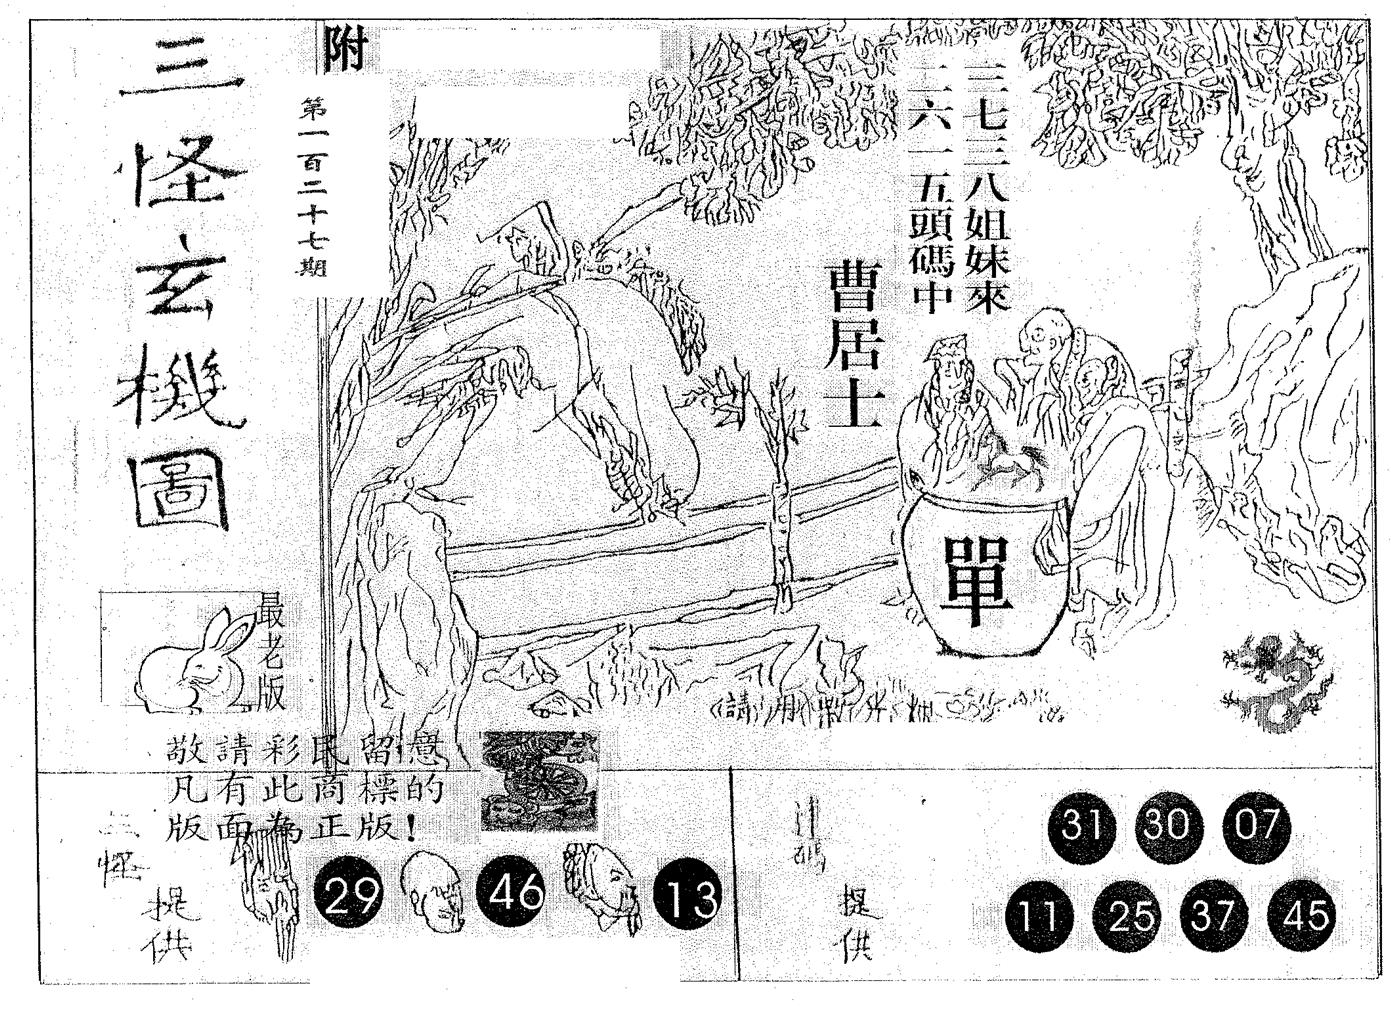 三怪玄機圖
附
第一百二十七期
三七三八姐妹來
二六一五頭碼中
曹居士
單
最老版
敬請彩民留意
凡有此商標的
版面為正版!
三怪
提供
29 46 13
提供
31 30 07
11 25 37 45